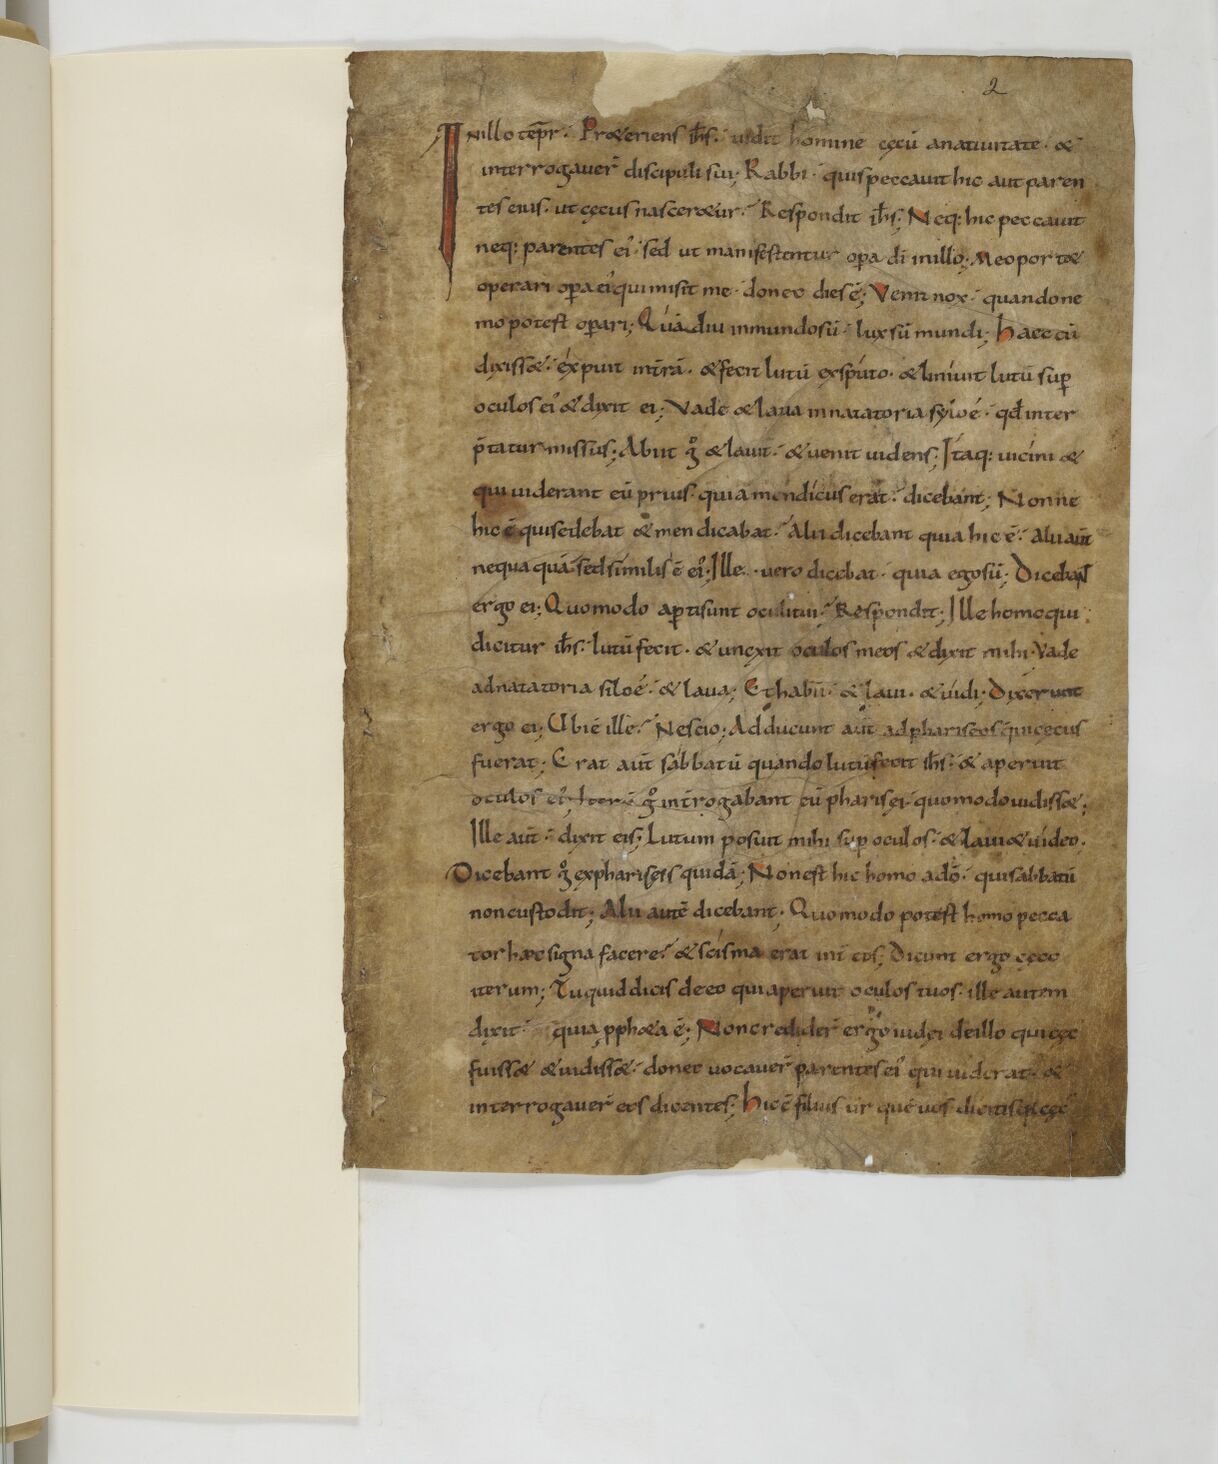 2
In illo tēpr̄. Praeteriens ih̄s. uidit homine cęcū anatiuitate. &
interrogauer̄ discipuli sui; Rabbi. quis peccauit hic aut paren
tes eius. ut cęcus nascer&ur. Respondit ih̄s; Neq: hic peccauit
neq: parentes ei'. sed ut manifestentur op̄a dī inillo; Me oport&
operari op̄a ei' qui misit me. donec dies ē; Venit nox. quando ne
mo potest op̄ari; Quādiu inmundo sū. lux sū mundi; Haec cū
dixiss&. éxpuit intrā. & fecit lutū exspúto. & liniuit lutū sup̄
oculos ei' & dixit ei; Vade & laua innatatoria syloé. qd̄ inter
p̄tatur missus; Abiit g̊ & lauit. & uenit uidens; Itaq: uicini &
qui uiderant eū prius. quia mendicus erat. dicebant; Nonne
hic ē qui sedebat & mendicabat. Alii dicebant quia hic ē. Alii aūt
nequaquā. sed similis ē ei'; Ille. uero dicebat. quia ego sū; Dicebant
ergo ei; Quomodo ap̄ti sunt oculi tui. Respondit; Ille homo qui
dicitur ih̄s. lutū fecit. & unexit oculos meos & dixit mihi. Vade
adnatatoria siloé. & laua; Et habii. & laui. & uidi; Dixerunt
ergo ei; Vbi ē ille. Nescio; Adducunt aūt ad phariseos qui cęcus
fuerat; Erat aūt sabbatū quando lutū fecit ih̄s. & aperuit
oculos ei'; Iterū g̊ introgabant eū pharisei. quomodo uidiss&;
Ille aūt. dixit eis; Lutum posuit mihi sup̄ oculos. & laui & uideo.
Dicebant g̊ expharisęis quidā; Non est hic homo adō. qui sabbatū
non custodit; Alii autē dicebant; Quomodo potest homo pecca
tor haec signa facere. & scisma erat int̄ eos; Dicunt ergo cęco
iterum; Tu quid dicis de eo qui aperuit oculos tuos. ille autem
dixit. quia pph&a ē; Non credider̄ ergo iudęi de illo qui cęc'
fuiss& & uidiss&. donec uocauer̄ parentes ei' qui uiderat. &
interrogauer̄ eos dicentes; Hic ē filius ūr quē uos dicitis q̄a cęc'